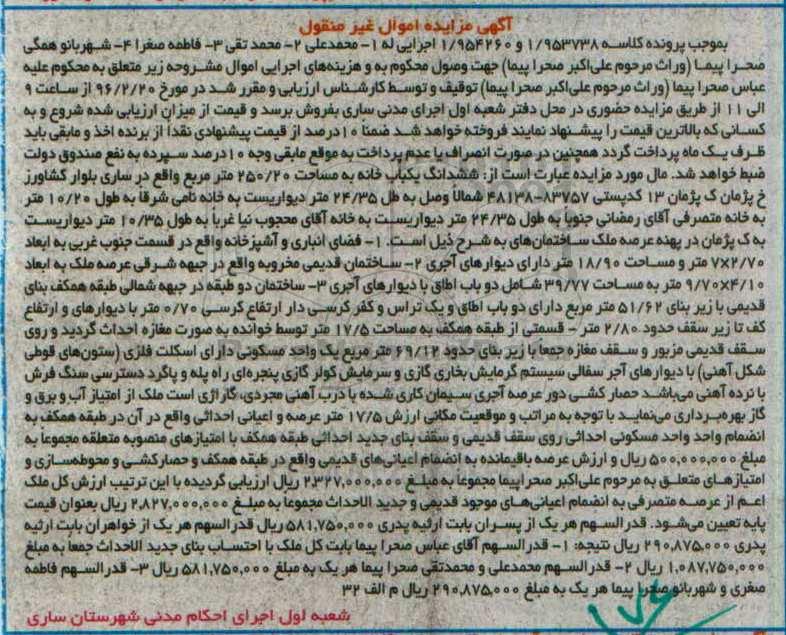 آگهی مزایده اموال غیر منقول
بموجب پرونده کلاسه ۱/۹۵۳۷۳۸ و ۱/۹۵۴۲۶۰ اجرایی له ۱- محمدعلی ۲- محمد تقی ۳- فاطمه صغرا ۴- شهربانو همگی
صحرا پیما (وراث مرحوم علی‌اکبر صحرا پیما) جهت وصول محکوم به و هزینه‌های اجرایی اموال مشروحه زیر متعلق به محکوم علیه
عباس صحرا پیما (وراث مرحوم علی‌اکبر صحرا پیما) توقیف و توسط کارشناس ارزیابی و مقرر شد در مورخ ۹۶/۲/۲۰ از ساعت ۹
الی ۱۱ از طریق مزایده حضوری در محل دفتر شعبه اول اجرای مدنی ساری بفروش برسد و قیمت از میزان ارزیابی شده شروع و به
کسانی که بالاترین قیمت را پیشنهاد نمایند فروخته خواهد شد ضمنا ۱۰درصد از قیمت پیشنهادی نقدا از برنده اخذ و مابقی باید
ظرف یک ماه پرداخت گردد همچنین در صورت انصراف یا عدم پرداخت به موقع مابقی وجه ۱۰درصد سپرده به نفع صندوق دولت
ضبط خواهد شد. مال مورد مزایده عبارت است از: ششدانگ یکباب خانه به مساحت ۲۵۰/۲۰ متر مربع واقع در ساری بلوار کشاورز
خ پژمان ک پژمان ۱۳ کدپستی ۸۳۷۵۷-۴۸۱۳۸ شمالاً وصل به طل ۲۴/۳۵ متر دیواریست به خانه نامی شرقا به طول ۱۰/۲۰ متر
به خانه متصرفی آقای رمضانی جنوبا به طول ۲۴/۳۵ متر دیواریست به خانه آقای محجوب نیا غرباً به طول ۱۰/۳۵ متر دیواریست
به ک پژمان در پهنه عرصه ملک ساختمان‌های به شرح ذیل است. ۱- فضای انباری و آشپزخانه واقع در قسمت جنوب غربی به ابعاد
۷×۲/۷۰ متر و مساحت ۱۸/۹۰ متر دارای دیوارهای آجری ۲- ساختمان قدیمی مخروبه واقع در جبهه شرقی عرصه ملک به ابعاد
۹/۷۰×۴/۱۰ متر به مساحت ۳۹/۷۷ شامل دو باب اطاق با دیوارهای آجری ۳- ساختمان دو طبقه در جبهه شمالی طبقه همکف بنای
قدیمی با زیر بنای ۵۱/۶۲ متر مربع دارای دو باب اطاق و یک تراس و کفر کرسی دار ارتفاع کرسی ۰/۷۰ متر با دیوارهای و ارتفاع
کف تا زیر سقف حدود ۲/۸۰ متر - قسمتی از طبقه همکف به مساحت ۱۷/۵ متر توسط خوانده به صورت مغازه احداث گردید و روی
سقف قدیمی مزبور و سقف مغازه جمعا با زیر بنای حدود ۶۹/۱۲ متر مربع یک واحد مسکونی دارای اسکلت فلزی (ستون‌های قوطی
شکل آهنی) با دیوارهای آجر سفالی سیستم گرمایش بخاری گازی و سرمایش کولر گازی پنجره‌ای راه پله و پاگرد دسترسی سنگ فرش
با نرده آهنی می‌باشد حصار کشی دور عرصه آجری سیمان کاری شده با درب آهنی مجردی، گاراژی است ملک از امتیاز آب و برق و
گاز بهره‌برداری می‌نماید با توجه به مراتب و موقعیت مکانی ارزش ۱۷/۵ متر عرصه و اعیانی احداثی واقع در آن در طبقه همکف به
انضمام واحد واحد مسکونی احداثی روی سقف قدیمی و سقف بنای جدید احداثی طبقه همکف با امتیازهای منصوبه متعلقه مجموعا به
مبلغ ۵۰۰,۰۰۰,۰۰۰ ریال و ارزش عرصه باقیمانده به انضمام اعیانی‌های قدیمی واقع در طبقه همکف و حصارکشی و محوطه‌سازی و
امتیازهای متعلق به مرحوم علی‌اکبر صحراپیما مجموعا به مبلغ ۲,۳۲۷,۰۰۰,۰۰۰ ریال ارزیابی گردیده با این ترتیب ارزش کل ملک
اعم از عرصه متصرفی به انضمام اعیانی‌های موجود قدیمی و جدید الاحداث مجموعا به مبلغ ۲,۸۲۷,۰۰۰,۰۰۰ ریال بعنوان قیمت
پایه تعیین می‌شود. قدرالسهم هر یک از پسران بابت ارثیه پدری ۵۸۱,۷۵۰,۰۰۰ ریال قدرالسهم هر یک از خواهران بابت ارثیه
پدری ۲۹۰,۸۷۵,۰۰۰ ریال نتیجه: ۱- قدرالسهم آقای عباس صحرا پیما بابت کل ملک با احتساب بنای جدید الاحداث جمعا به مبلغ
۱,۰۸۷,۷۵۰,۰۰۰ ریال ۲- قدرالسهم محمدعلی و محمدتقی صحرا پیما هر یک به مبلغ ۵۸۱,۷۵۰,۰۰۰ ریال ۳- قدرالسهم فاطمه
صغری و شهربانو صحرا پیما هر یک به مبلغ ۲۹۰,۸۷۵,۰۰۰ ریال م الف ۳۲
شعبه اول اجرای احکام مدنی شهرستان ساری